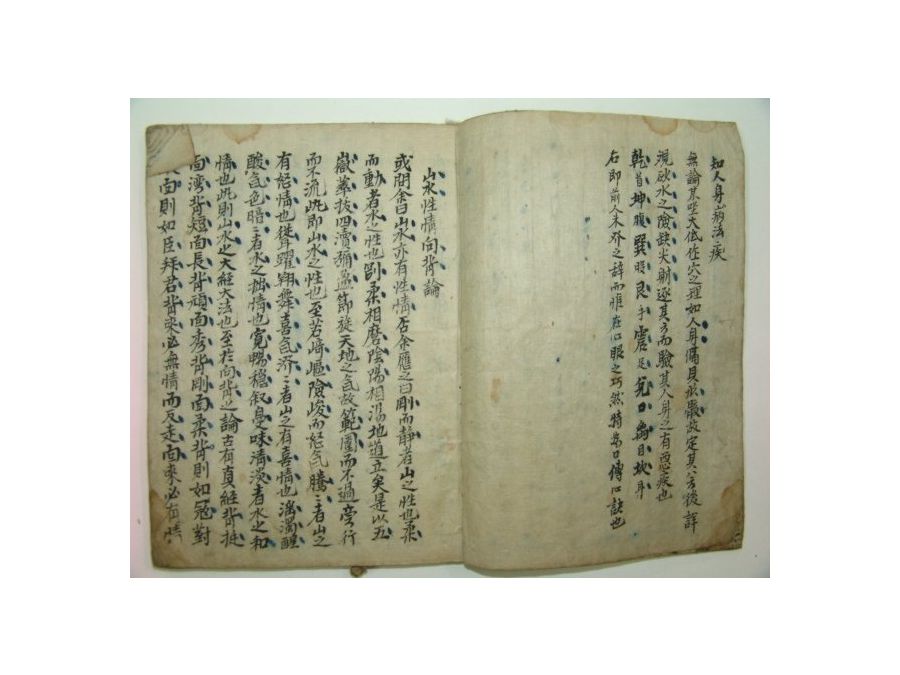 知人身病法疾
無論某坐大低作穴之理如人身備具故嚴敬定其穴後詳
視砂水之險缺尖射逐其方而驗其人身之有悪疾也
乾首坤腹巽股艮手震足兌口离目坎耳
右即前人未發之辞而惟在心眼之巧然特為口傳心訣也
山水性情向背論
或問余曰山水亦有性情否余應之曰剛而静者山之性也柔
而動者水之性也剛柔相磨陰陽相湯地道立矣是以五
嶽峯拔四瀆彌滿節旋天地之气故範圍而不過旁行
而不流此即山水之性也至若崎嶇險峻而怒气騰〻者山之
有怒情也從躍翔舞喜气济〻者山之有喜情也濁濁醒
酸气色暗〻者水之拙情也寬暢穩叙臭味清淡者水之和
情也此則山水之大經大法也至於向背之論古有真經背挺
面湾背短面長背頑面秀背剛面柔背則如冠對
面則如臣拜君背來必無情而反走面來必有情